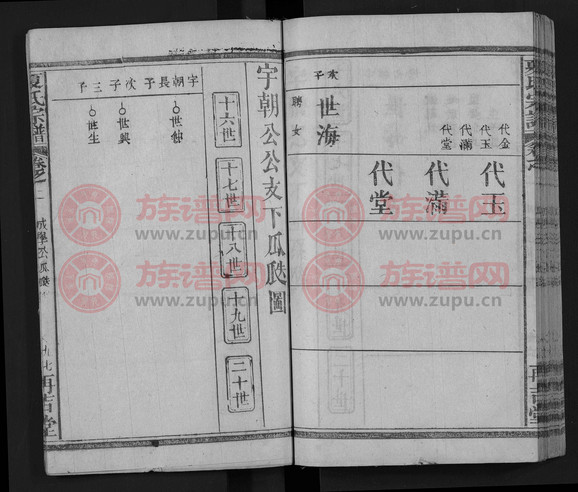 代金
代玉
代滿
代堂
代玉
代滿
代堂
次
子
世海
聘
女
宇朝公公支下瓜瓞圖
十六世
十七世
十八世
十九世
二十世
宇朝長子
世
次子
世興
三子
世生
夏氏宗譜
卷之
九七
再吉堂
族谱网
www.zupu.cn
族谱网
www.zupu.cn
族谱网
www.zupu.cn
族谱网
www.zupu.cn